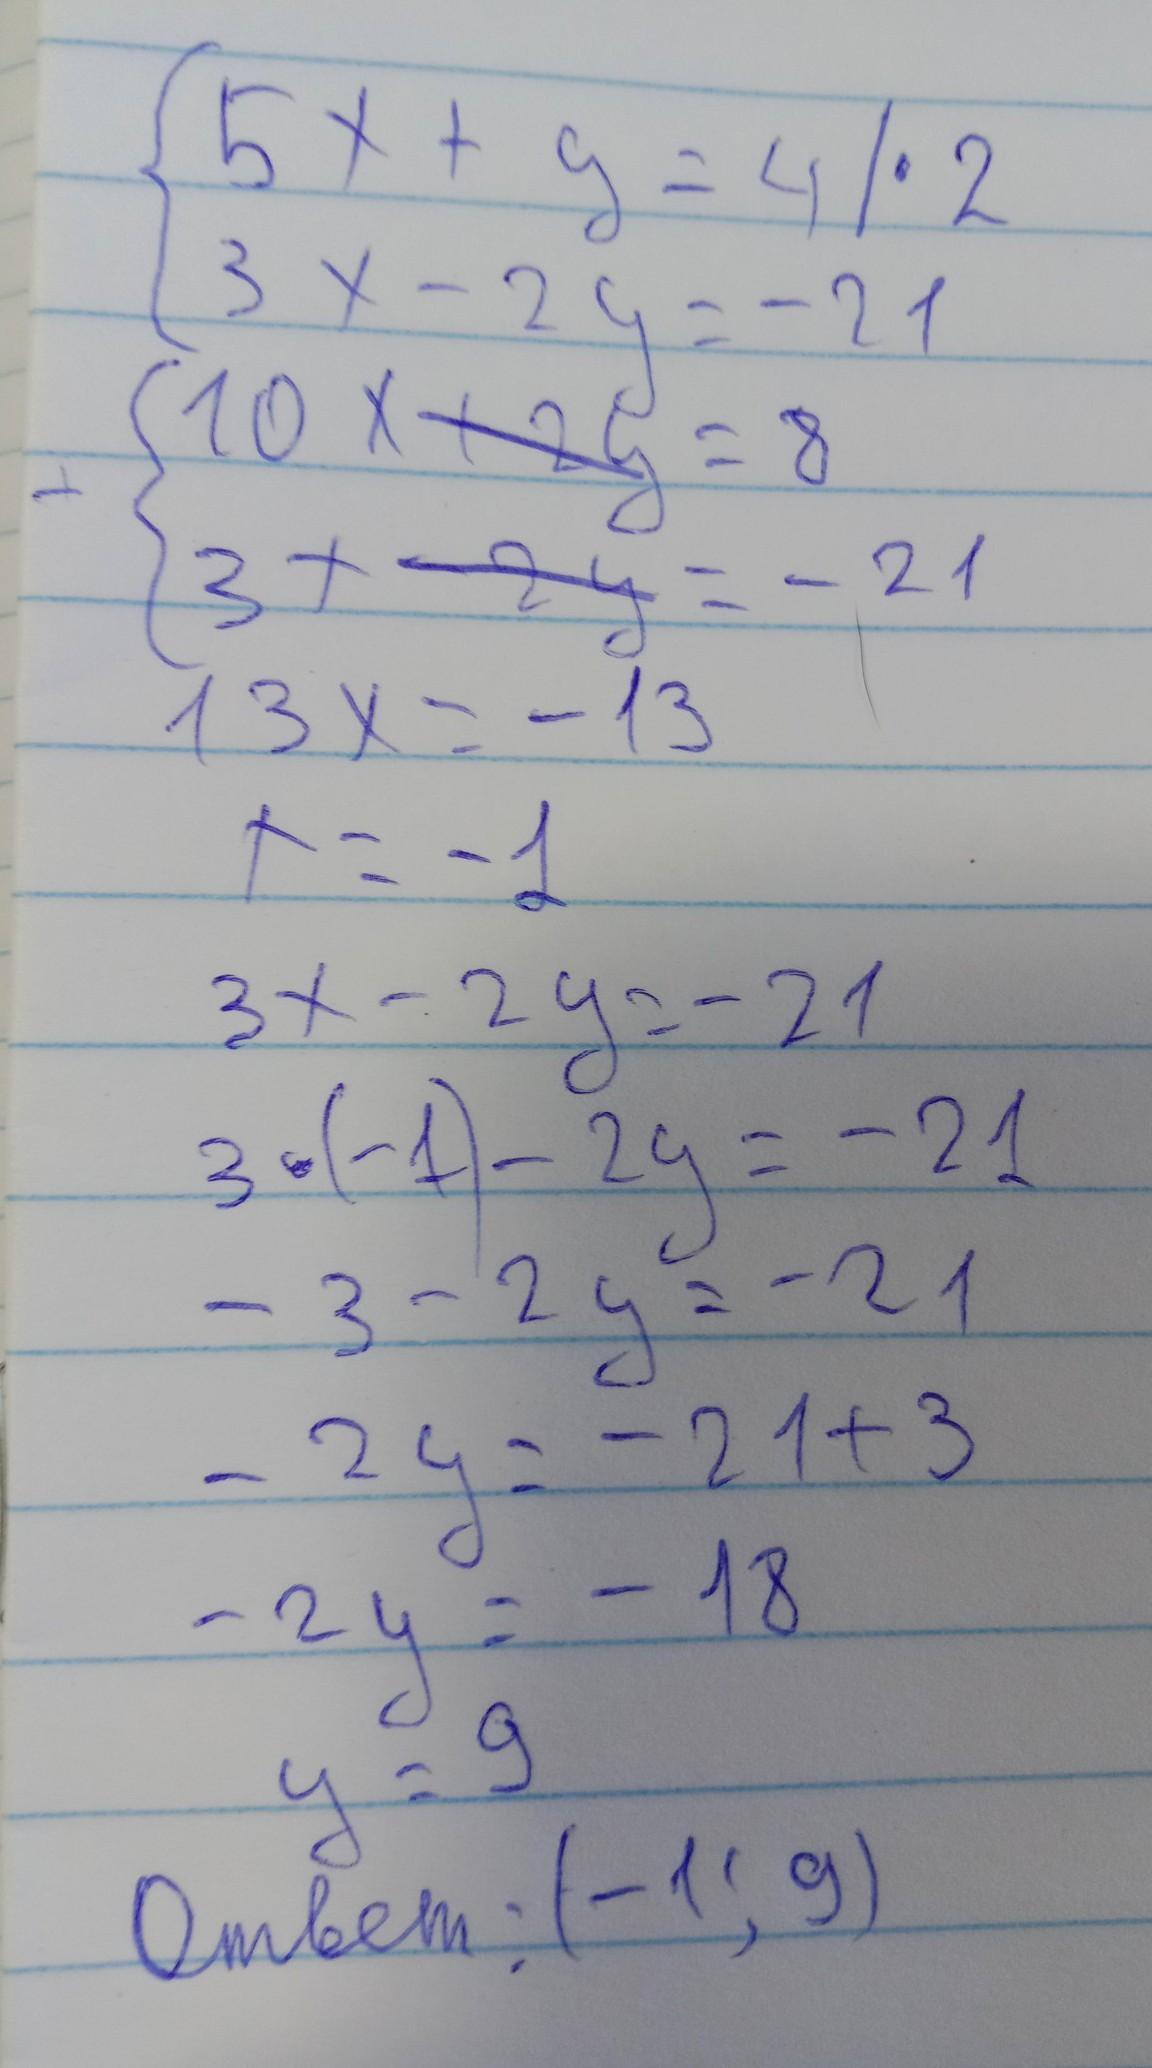 5x + y = 4 / · 2
3x - 2y = -21
10x + 2y = 8
+
3x - 2y = -21
13x = -13
x = -1
3x - 2y = -21
3·(-1) - 2y = -21
-3 - 2y = -21
-2y = -21+3
-2y = -18
y = 9
Ответ: (-1; 9)